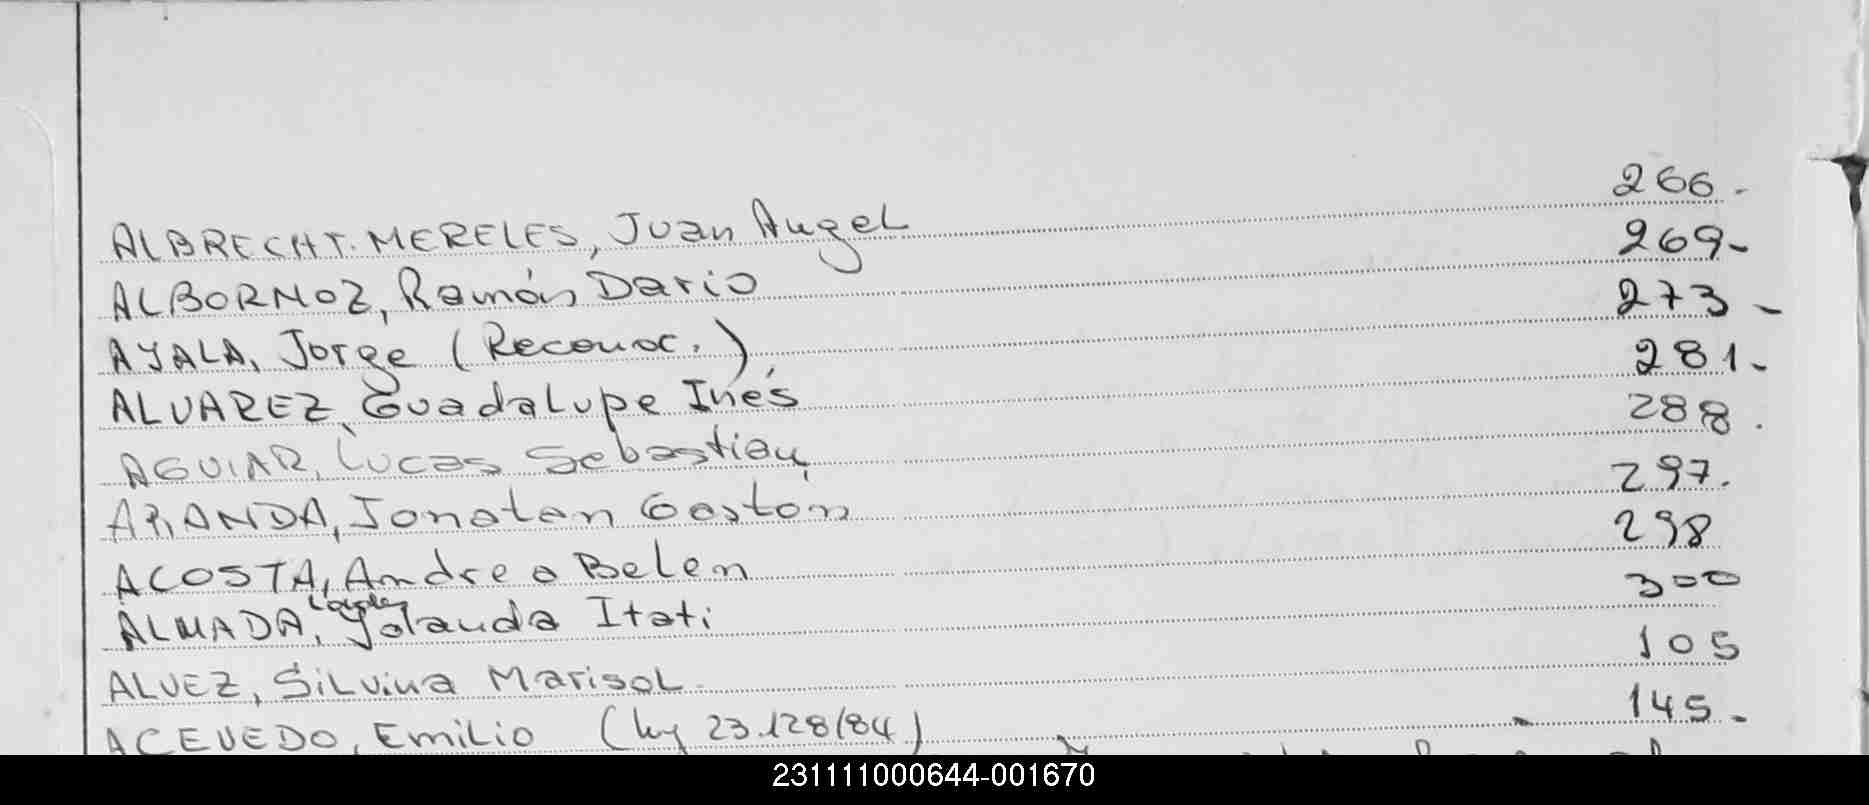 ALBRECHT. MERELES, Juan Angel 266.
ALBORNOZ, Ramón Dario 269-
AYALA, Jorge (Reconoc.) 273-
ALVAREZ, Guadalupe Inés 281-
AGUIAR, Lucas Sebastian 288.
ARANDA, Jonatan Gastón 297.
ACOSTA, Andrea Belen 298
ALMADA, Yolanda Itati 300
ALVEZ, Silvina Marisol. 105
ACEVEDO, Emilio (ley 23.128/84) 145-
231111000644-001670